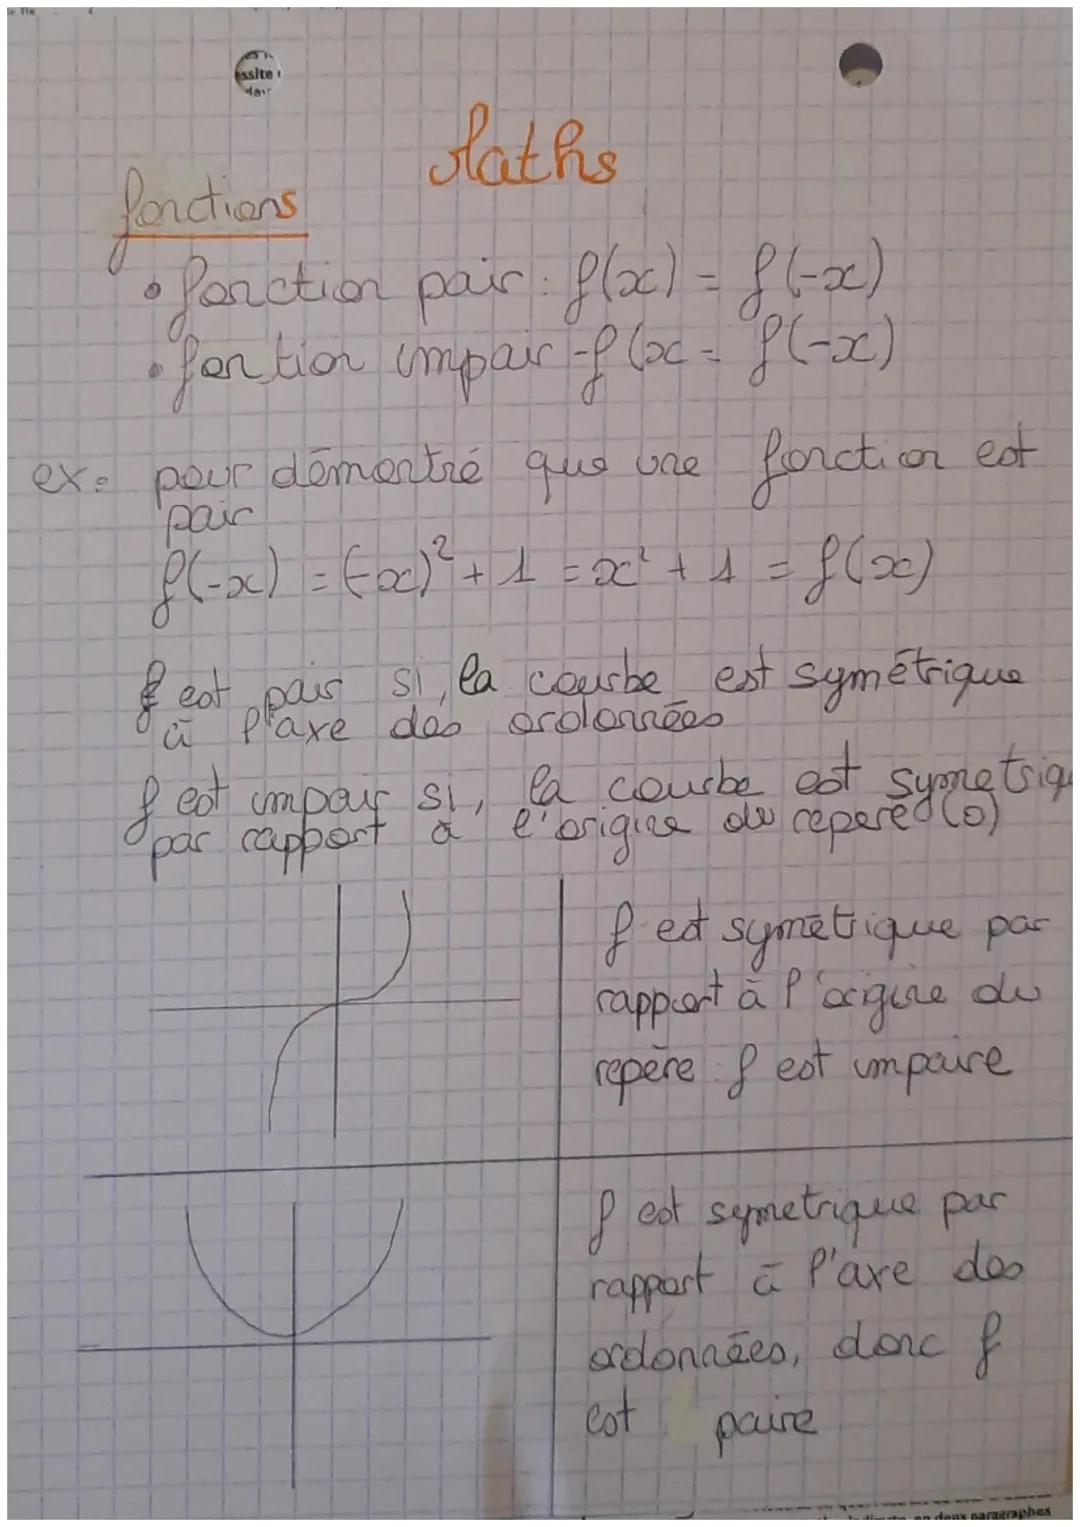 ssite
Maths
fonctions
• fonction pair : f(x) = f(-x)
• fontion impair -f(x = f(-x)
ex: pour démontré que une fonction est
pair
f(-x) = (-x)² + 1 = x² + 1 = f(x)
f est pair si, la courbe est symétrique
à l'axe des ordonnées
f est impair si, la courbe est symetriqu
par rapport à l'origine du repère (0)
f est symétrique par
rapport à l'origine du
repère f est impaire
f est symetrique par
rapport à l'axe des
ordonnées, donc f
est paire
en deux paragraphes